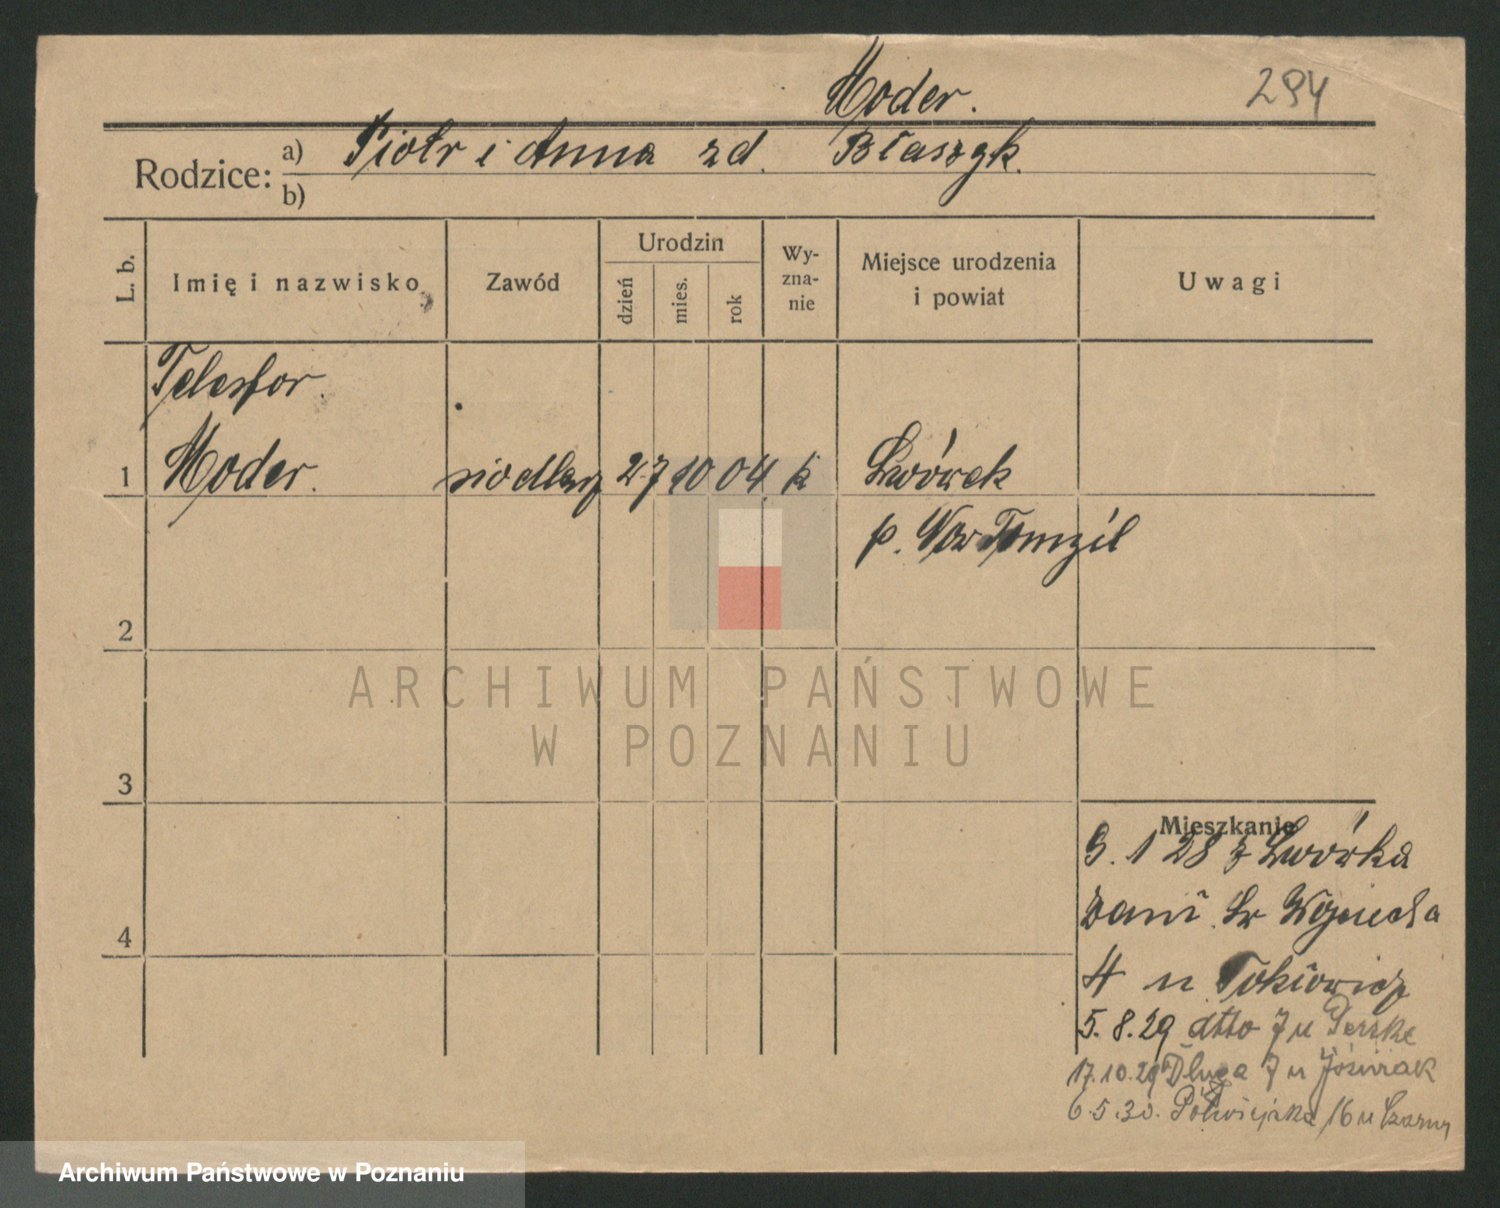 Moder.
294
Rodzice: a) Piotr i Anna zd. Błaszyk.
b)
L. b.
Imię i nazwisko
Zawód
Urodzin
dzień
mies.
rok
Wy-
zna-
nie
Miejsce urodzenia
i powiat
Uwagi
Telesfor
1 Moder. siodlarz 27 10 04 k Lwówek
p. Now Tomyśl
2
3
4
Mieszkanie
9. 1 28 z Lwówka
zam. Św Wojciecha
4 u
5.8.29 dtto 7 u Perske
17.10.29 Długa 7 u Jóźwiak
6.5.30. Półwiejska 16 u Czarny
ARCHIWUM PAŃSTWOWE
W POZNANIU
Archiwum Państwowe w Poznaniu